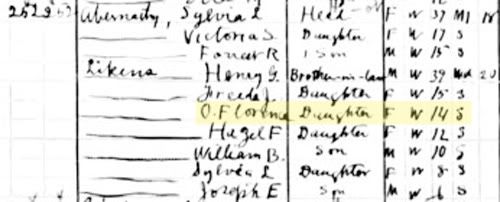 252 252 Abernathy, Sylvia L Head F W 37 M1
Victoria S Daughter F W 17 S
R Son M W S
Likens Henry G. Brother-in-law M W 39 Wd
Freeda J. Daughter F W 15 S
O. Florence Daughter F W 14 S
Hazel F Daughter F W 12 S
William B. Son M W 10 S
Sylvia L Daughter F W 8 S
Joseph E Son M W 6 S